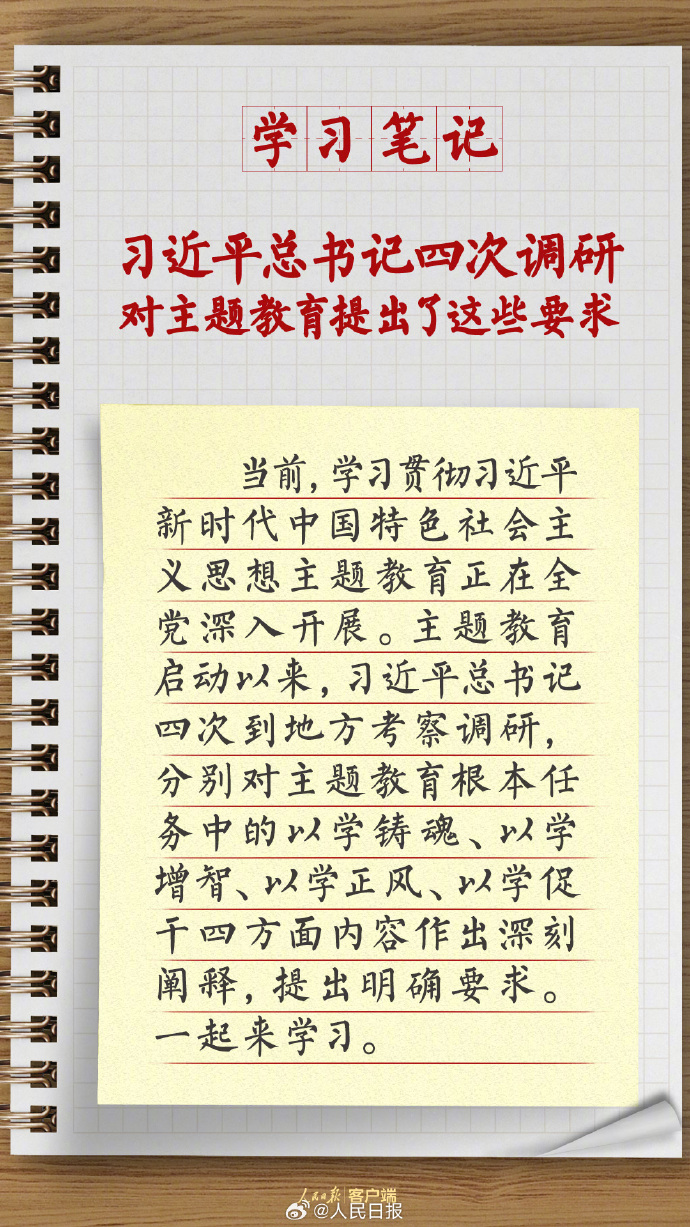 学习笔记
习近平总书记四次调研
对主题教育提出了这些要求
当前，学习贯彻习近平
新时代中国特色社会主
义思想主题教育正在全
党深入开展。主题教育
启动以来，习近平总书记
四次到地方考察调研，
分别对主题教育根本任
务中的以学铸魂、以学
增智、以学正风、以学促
干四方面内容作出深刻
阐释，提出明确要求。
一起来学习。
人民日报 客户端
@人民日报